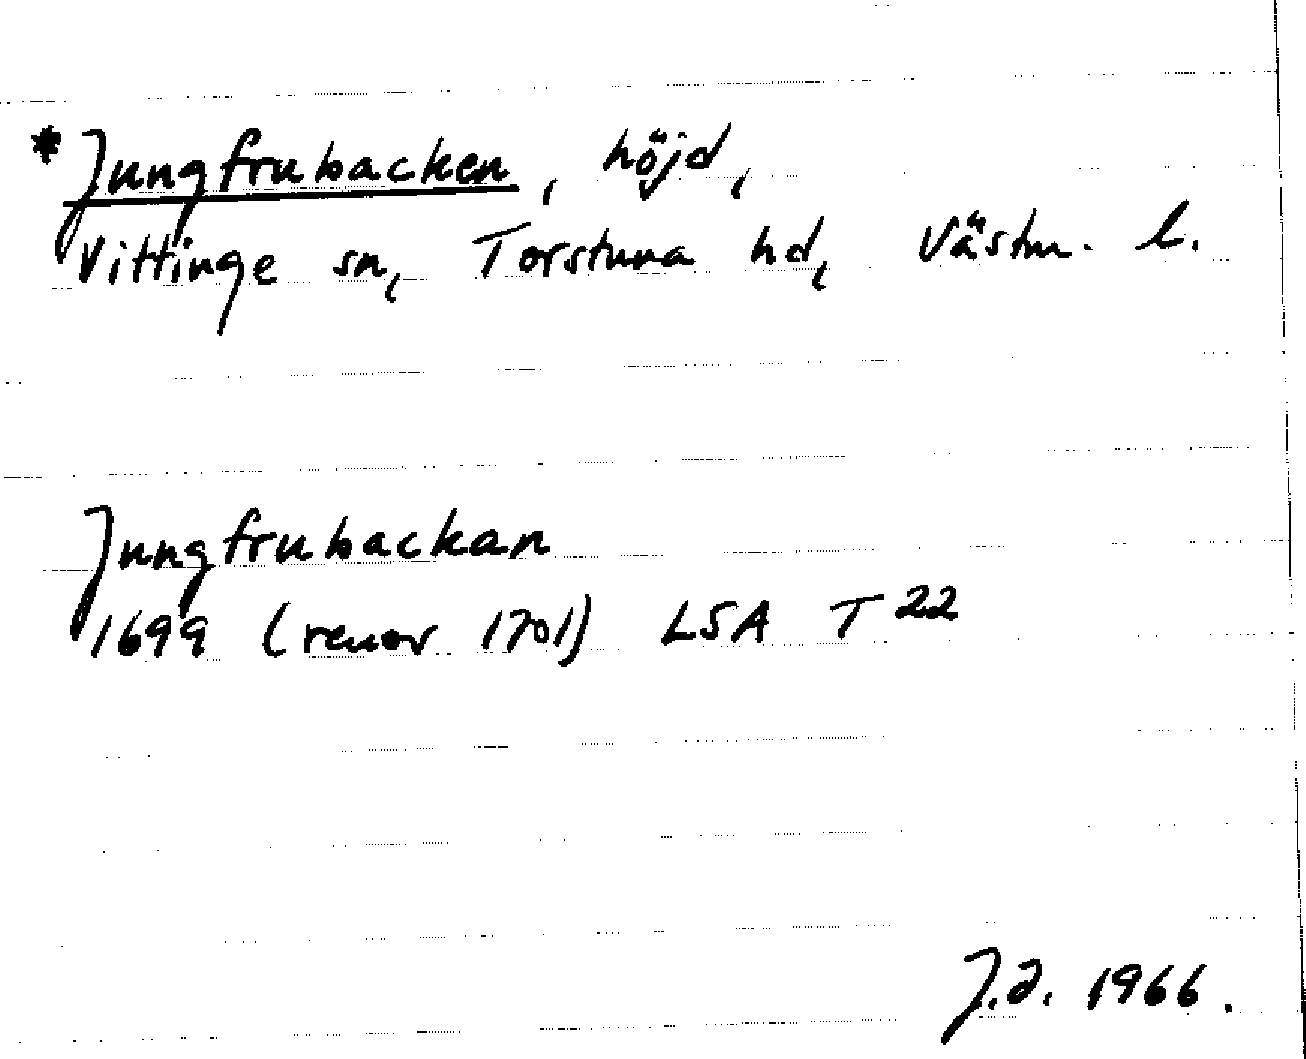 *Jungfrubacken, höjd,
Vittinge sn, Torstuna hd, Västm. l.
Jungfrubackan
1699 (renov 1701) LSA T 22
J.a. 1966.